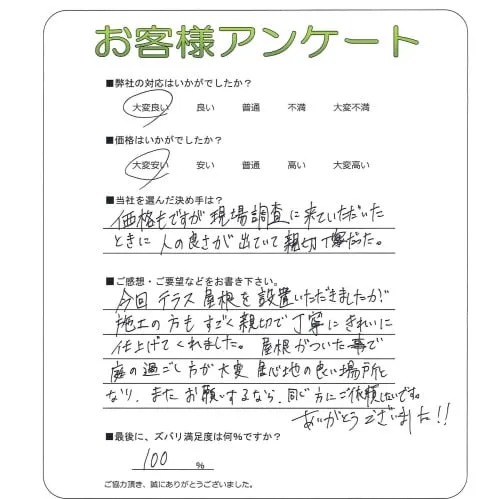 お客様アンケート
■弊社の対応はいかがでしたか?
大変良い 良い 普通 不満 大変不満
■価格はいかがでしたか?
大変安い 安い 普通 高い 大変高い
■当社を選んだ決め手は?
価格もですが現場調査に来ていただいた
ときに人の良さが出ていて親切丁寧だった。
■ご感想・ご要望などをお書き下さい。
今回テラス屋根を設置いただきましたが
施工の方もすごく親切で丁寧にきれいに
仕上げてくれました。屋根がついた事で
庭の過ごし方が大変居心地の良い場所と
なり、またお願いするなら、同じ方にご依頼したいです。
ありがとうございました!!
■最後に、ズバリ満足度は何%ですか?
100 %
ご協力頂き、誠にありがとうございました。